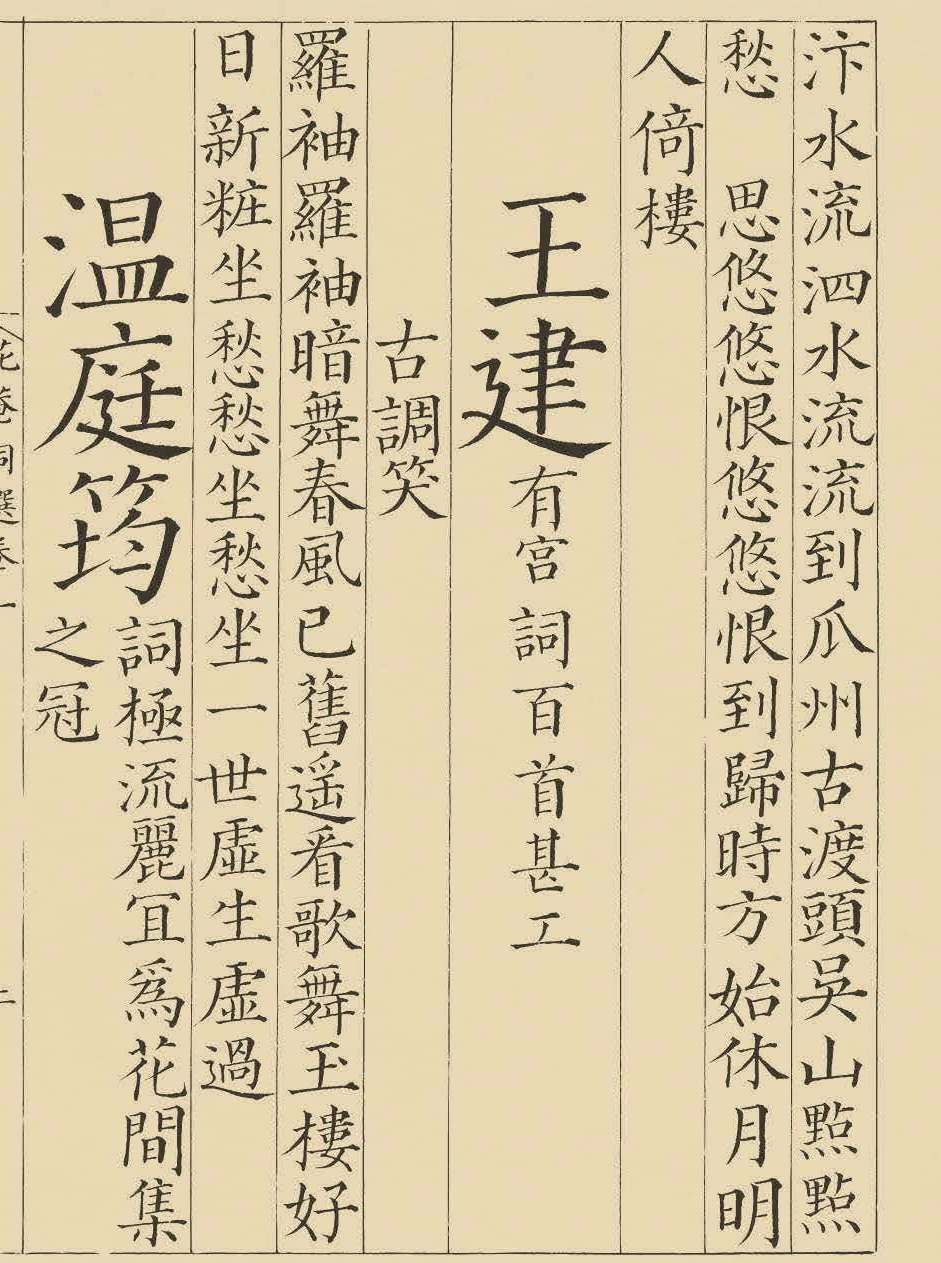 汴水流泗水流流到瓜州古渡頭吳山㸃㸃
愁　思悠悠恨悠悠恨到歸時方始休月明
人倚樓
王建有宮詞百首甚工
古調笑
羅袖羅袖暗舞春風已舊遥看歌舞玉樓好
日新粧坐愁愁坐愁坐一世虛生虛過
温庭筠詞極流麗冝爲花間集
之冠
花菴詞選卷一